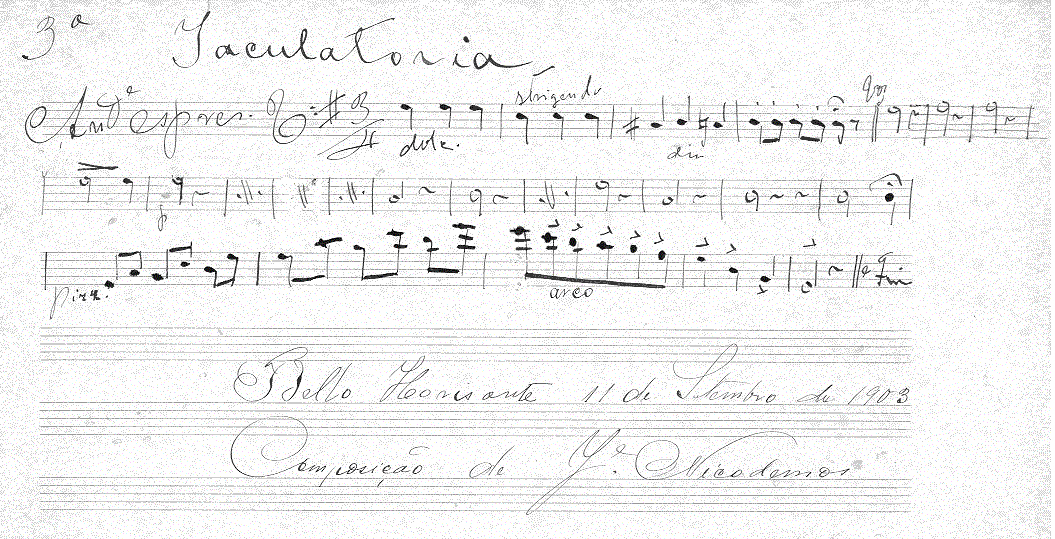 3ª Jaculatoria
Andᵉ espres.
strigendo
dolc.
dim
p
pizz.
arco
Fim
Bello Horisonte 11 de Setembro de 1903
Composição de Jᵉ. Nicodemos